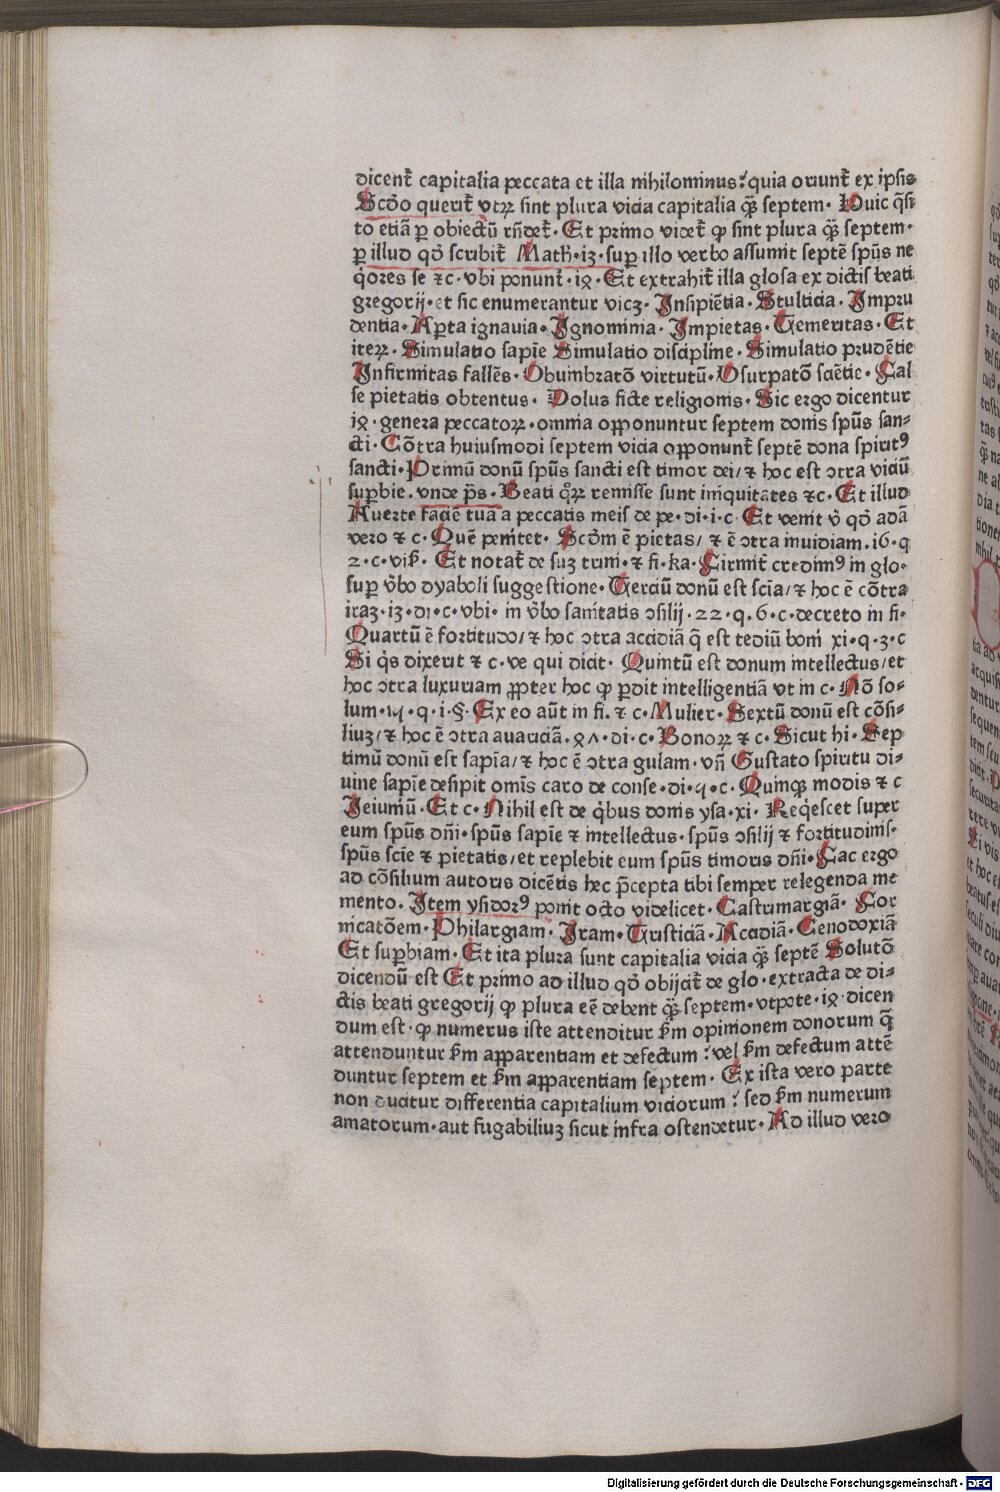 dicent̄ capitalia peccata et illa nihilominus: quia oriunt̄ ex ipsis
Scd̄o querit̄ vtꝝ sint plura vicia capitalia qꝫ̄ septem· Huic q̄si
to etiā ꝑ obiectū rn̄det̄· Et primo videt̄ ꝙ sint plura qꝫ̄ septem·
ꝑ illud qd̄ scribit̄ Math̄·iꝫ· suꝑ illo verbo assumit septē spūs ne
q̇ores se ⁊c· vbi ponunt̄·i9· Et extrahit̄ illa glosa ex dictis beati
gregorij· et sic enumerantur vicꝫ· Insipiētia· Stulticia· Impru
dentia· Aꝑta ignauia· Ignominia· Impietas· Temeritas· Et
iteꝝ· Simulatio sapīe Simulatio discipline· Simulatio prudētie
Infirmitas fallēs· Obumbratō virtutū· Vsurpatō scīetie· Fal
se pietatis obtentus· Dolus ficte religionis· Sic ergo dicentur
i9· genera peccatoꝝ· omnia opponuntur septem donis spūs san⸗
cti· Cōtra huiusmodi septem vicia opponunt̄ septē dona spiritꝰ
sancti· Primū donū spūs sancti est timor dei/ ⁊ hoc est ↄtra viciū
suꝑbie. vnde p̄s· Beati qͦꝝ remisse sunt iniquitates ⁊c· Et illud
Auerte faciē tuā a peccatis meis de pe· di· i· c· Et venit v̄ qd̄ adā
vero ⁊ c· Quē penitet· Scd̄m ē pietas/ ⁊ ē ↄtra inuidiam. i6· q
2· c· viꝭ· Et notat̄ de suꝫ trini· ⁊ fi· ka· Firmit̄ credimꝰ in glo·
suꝑ v̄bo dyaboli suggestione· Terciū donū est scīa/ ⁊ hoc ē cōtra
iraꝫ· iꝫ· di· c· vbi· in v̄bo sanitatis ↄsilij· 22· q· 6· c· decreto in fi·
Quartū ē fortitudo/ ⁊ hoc ↄtra accidiā q̄ est tediū boni xi· q· 3· c
Si q̇s dixerit ⁊ c· ve qui dicit· Quintū est donum intellectus/ et
hoc ↄtra luxuriam ꝓpter hoc ꝙ ꝑdit intelligentiā vt in c· Nō so⸗
lum· q· i· §· Ex eo aūt in fi. ⁊ c· Mulier· Sextū donū est cōsi⸗
liuꝫ/ ⁊ hoc ē ↄtra auariciā· 9ʌ· di· c· Bonoꝝ ⁊ c· Sicut hi· Sep
timū donū est sapīa/ ⁊ hoc ē ↄtra gulam· vn̄ Gustato spiritu di⸗
uine sapīe desipit omīs caro de conse· di· c· Quinqꝫ modis ⁊ c
Ieiuniū· Et c· Nihil est de q̇bus donis ysa· xi· Req̇escet super
eum spūs dn̄i· spūs sapīe ⁊ intellectus· spūs ↄsilij ⁊ fortitudinis·
spūs scīe ⁊ pietatis/ et replebit eum spūs timoris dn̄i· Fac ergo
ad cōsilium autoris dicētis hec p̄cepta tibi semper relegenda me
mento. Item ysidorꝰ ponit octo videlicet· Castrimargiā· For
nicatōem· Philargiam· Iram· Tristiciā· Acadiā· Cenodoxiā
Et suꝑbiam· Et ita plura sunt capitalia vicia qꝫ̄ septē Solutō
dicendū est Et primo ad illud qd̄ obijcit̄ de glo· extracta de di⸗
ctis beati gregorij ꝙ plura eē debent qꝫ̄ septem· vtpote· i9· dicen
dum est· ꝙ numerus iste attenditur ẜm opinionem donorum q̄
attenduntur ẜm apparentiam et defectum: vel ẜm defectum attē
duntur septem et ẜm apparentiam septem· Ex ista vero parte
non ducitur differentia capitalium viciorum: sed ẜm numerum
amatorum· aut fugabiliuꝫ sicut infra ostendetur· Ad illud vero
Digitalisierung gefördert durch die Deutsche Forschungsgemeinschaft - DFG